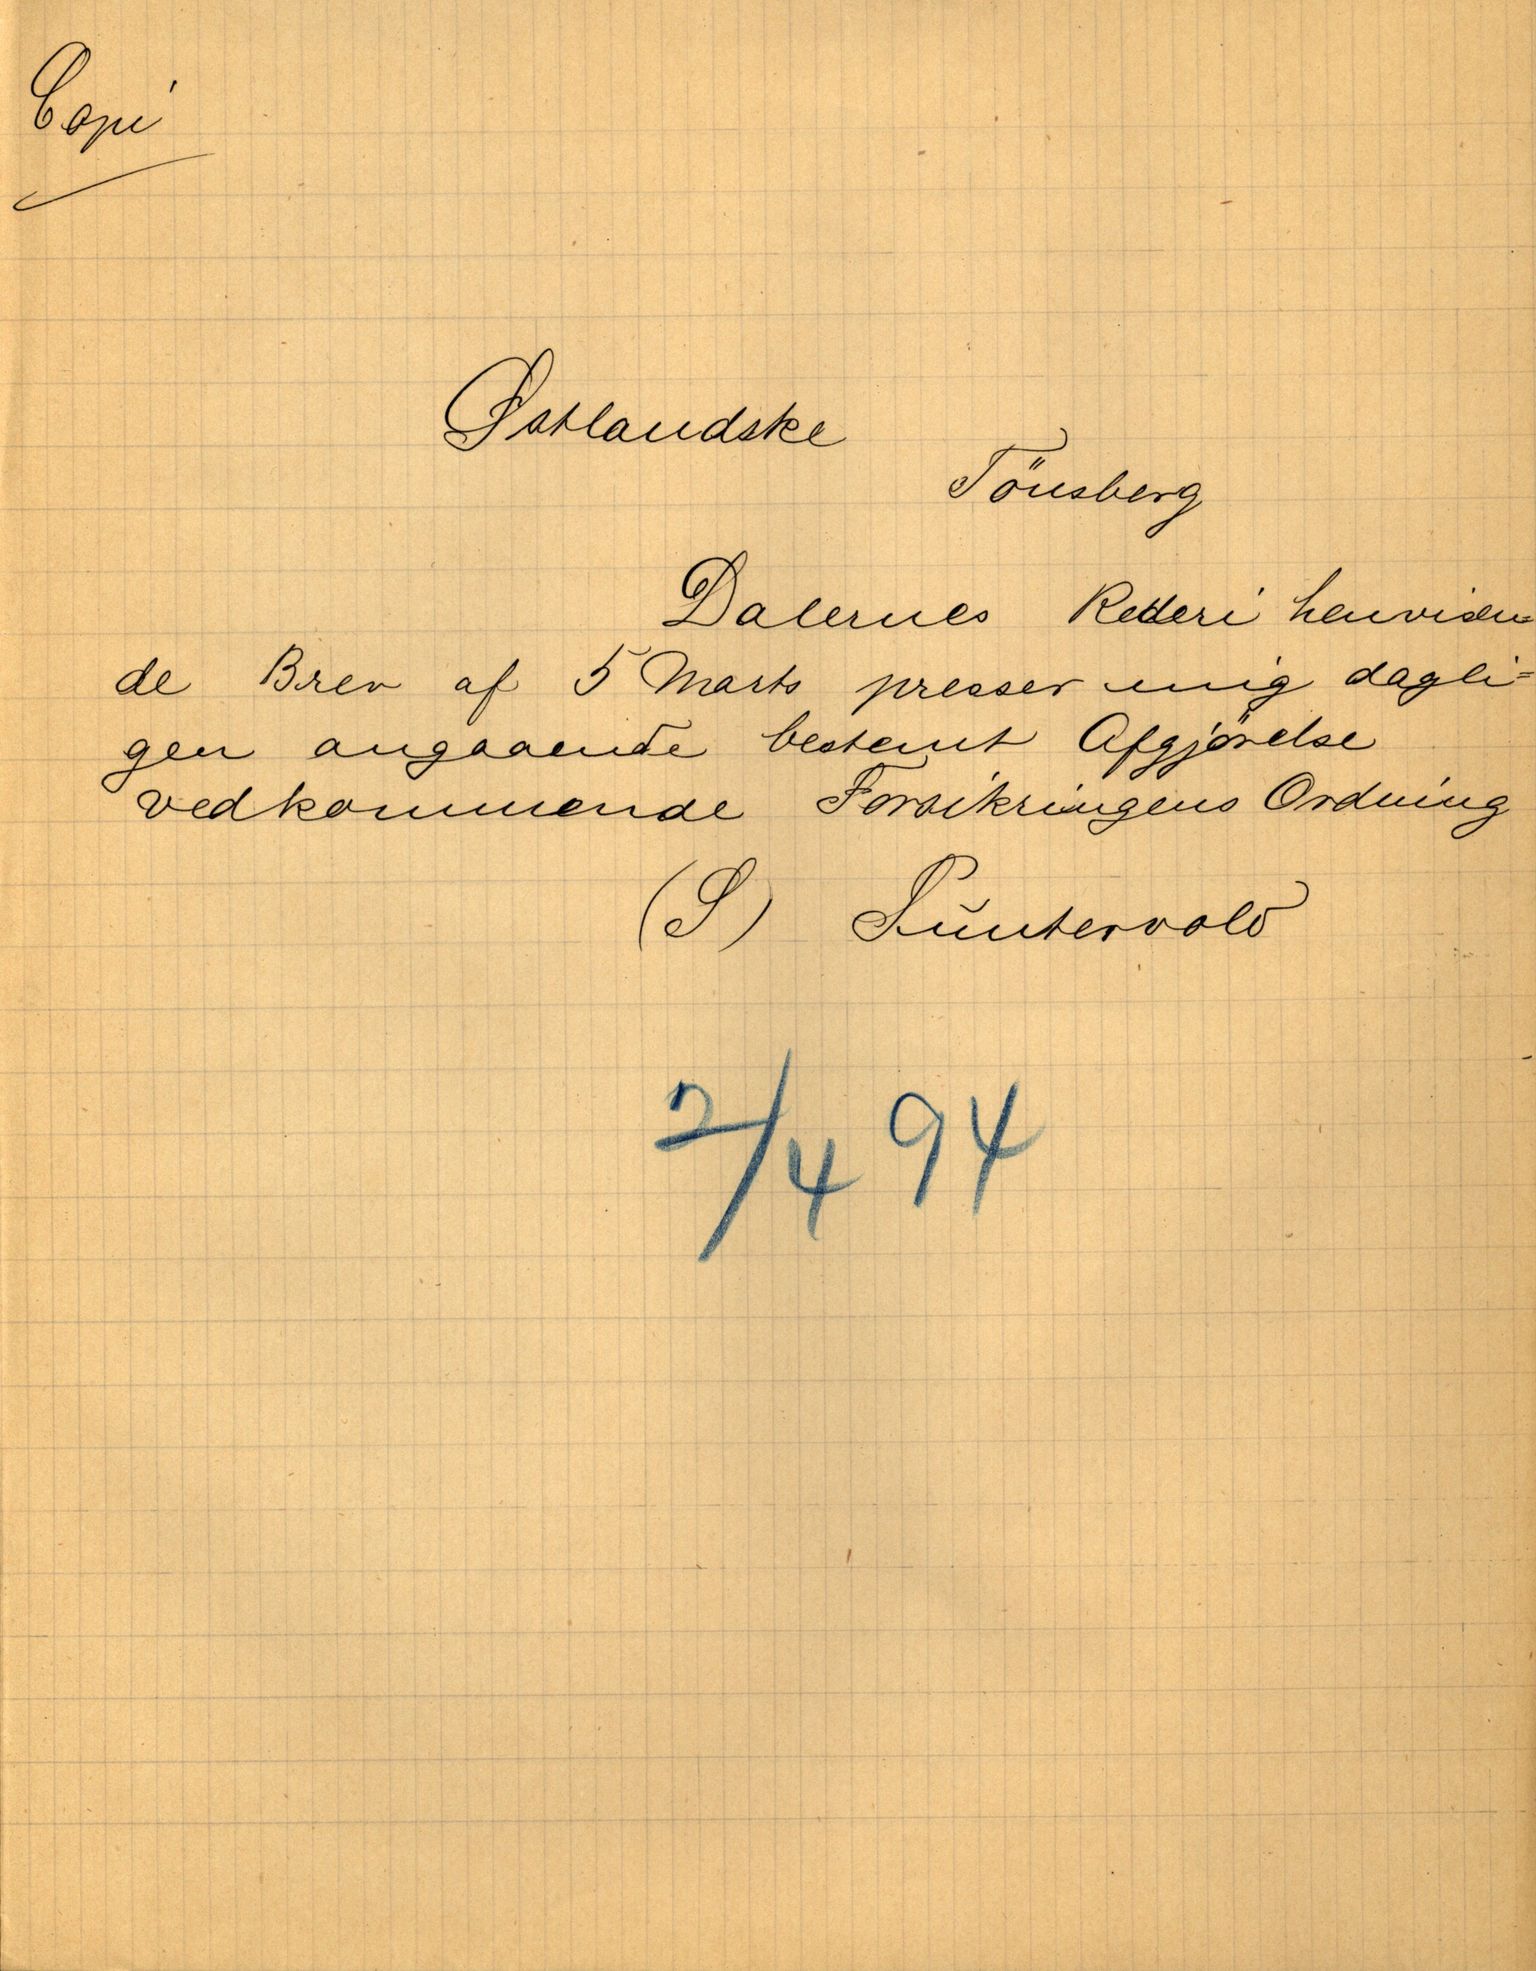 Copi
Østlandske
Tönsberg
Dalernes Rederi henvisen=
de Brev af 5 Marts presser mig dagli=
gen angaaende bestemt Afgjörelse
vedkommende Forsikringens Ordning
(S) Puntervold
2/4 94